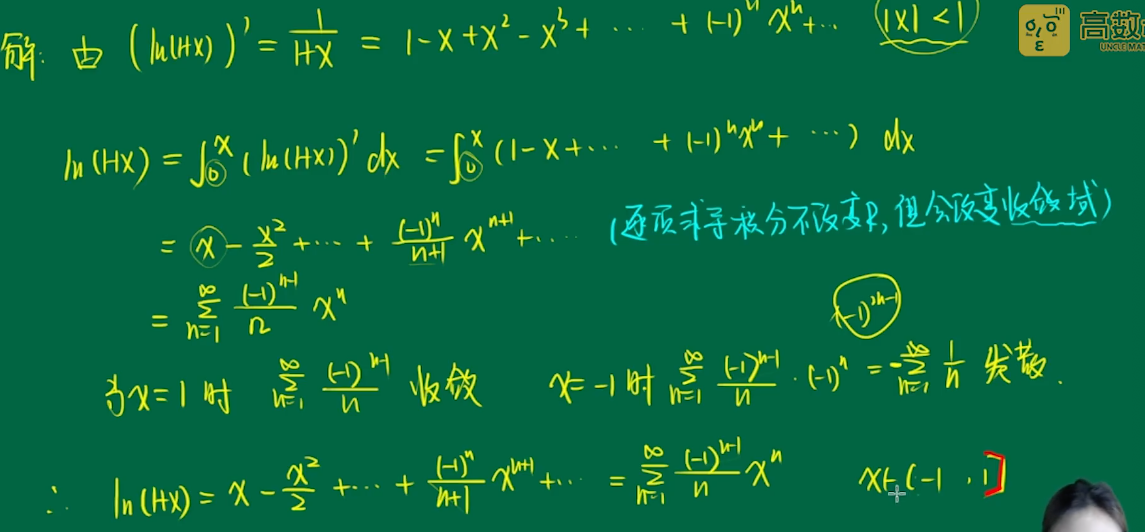 解: 由 (ln(1+x))' = 1/(1+x) = 1-x+x²-x³+ ... +(-1)ⁿxⁿ+... |x|<1
高数
UNCLE MA
ln(1+x) = ∫₀ˣ (ln(1+x))' dx = ∫₀ˣ (1-x+... +(-1)ⁿxⁿ+ ...) dx
= x - x²/2 +...+ (-1)ⁿ/(n+1) xⁿ⁺¹+.... (逐项求导积分不改变R, 但会改变收敛域)
= ∑_{n=1}^{∞} (-1)ⁿ⁻¹/n xⁿ (-1)²ⁿ⁻¹
当x=1时 ∑_{n=1}^{∞} (-1)ⁿ⁻¹/n 收敛 x=-1时 ∑_{n=1}^{∞} (-1)ⁿ⁻¹/n · (-1)ⁿ = -∑_{n=1}^{∞} 1/n 发散.
∴ ln(1+x) = x - x²/2 +...+ (-1)ⁿ/(n+1) xⁿ⁺¹+... = ∑_{n=1}^{∞} (-1)ⁿ⁻¹/n xⁿ x∈(-1, 1]